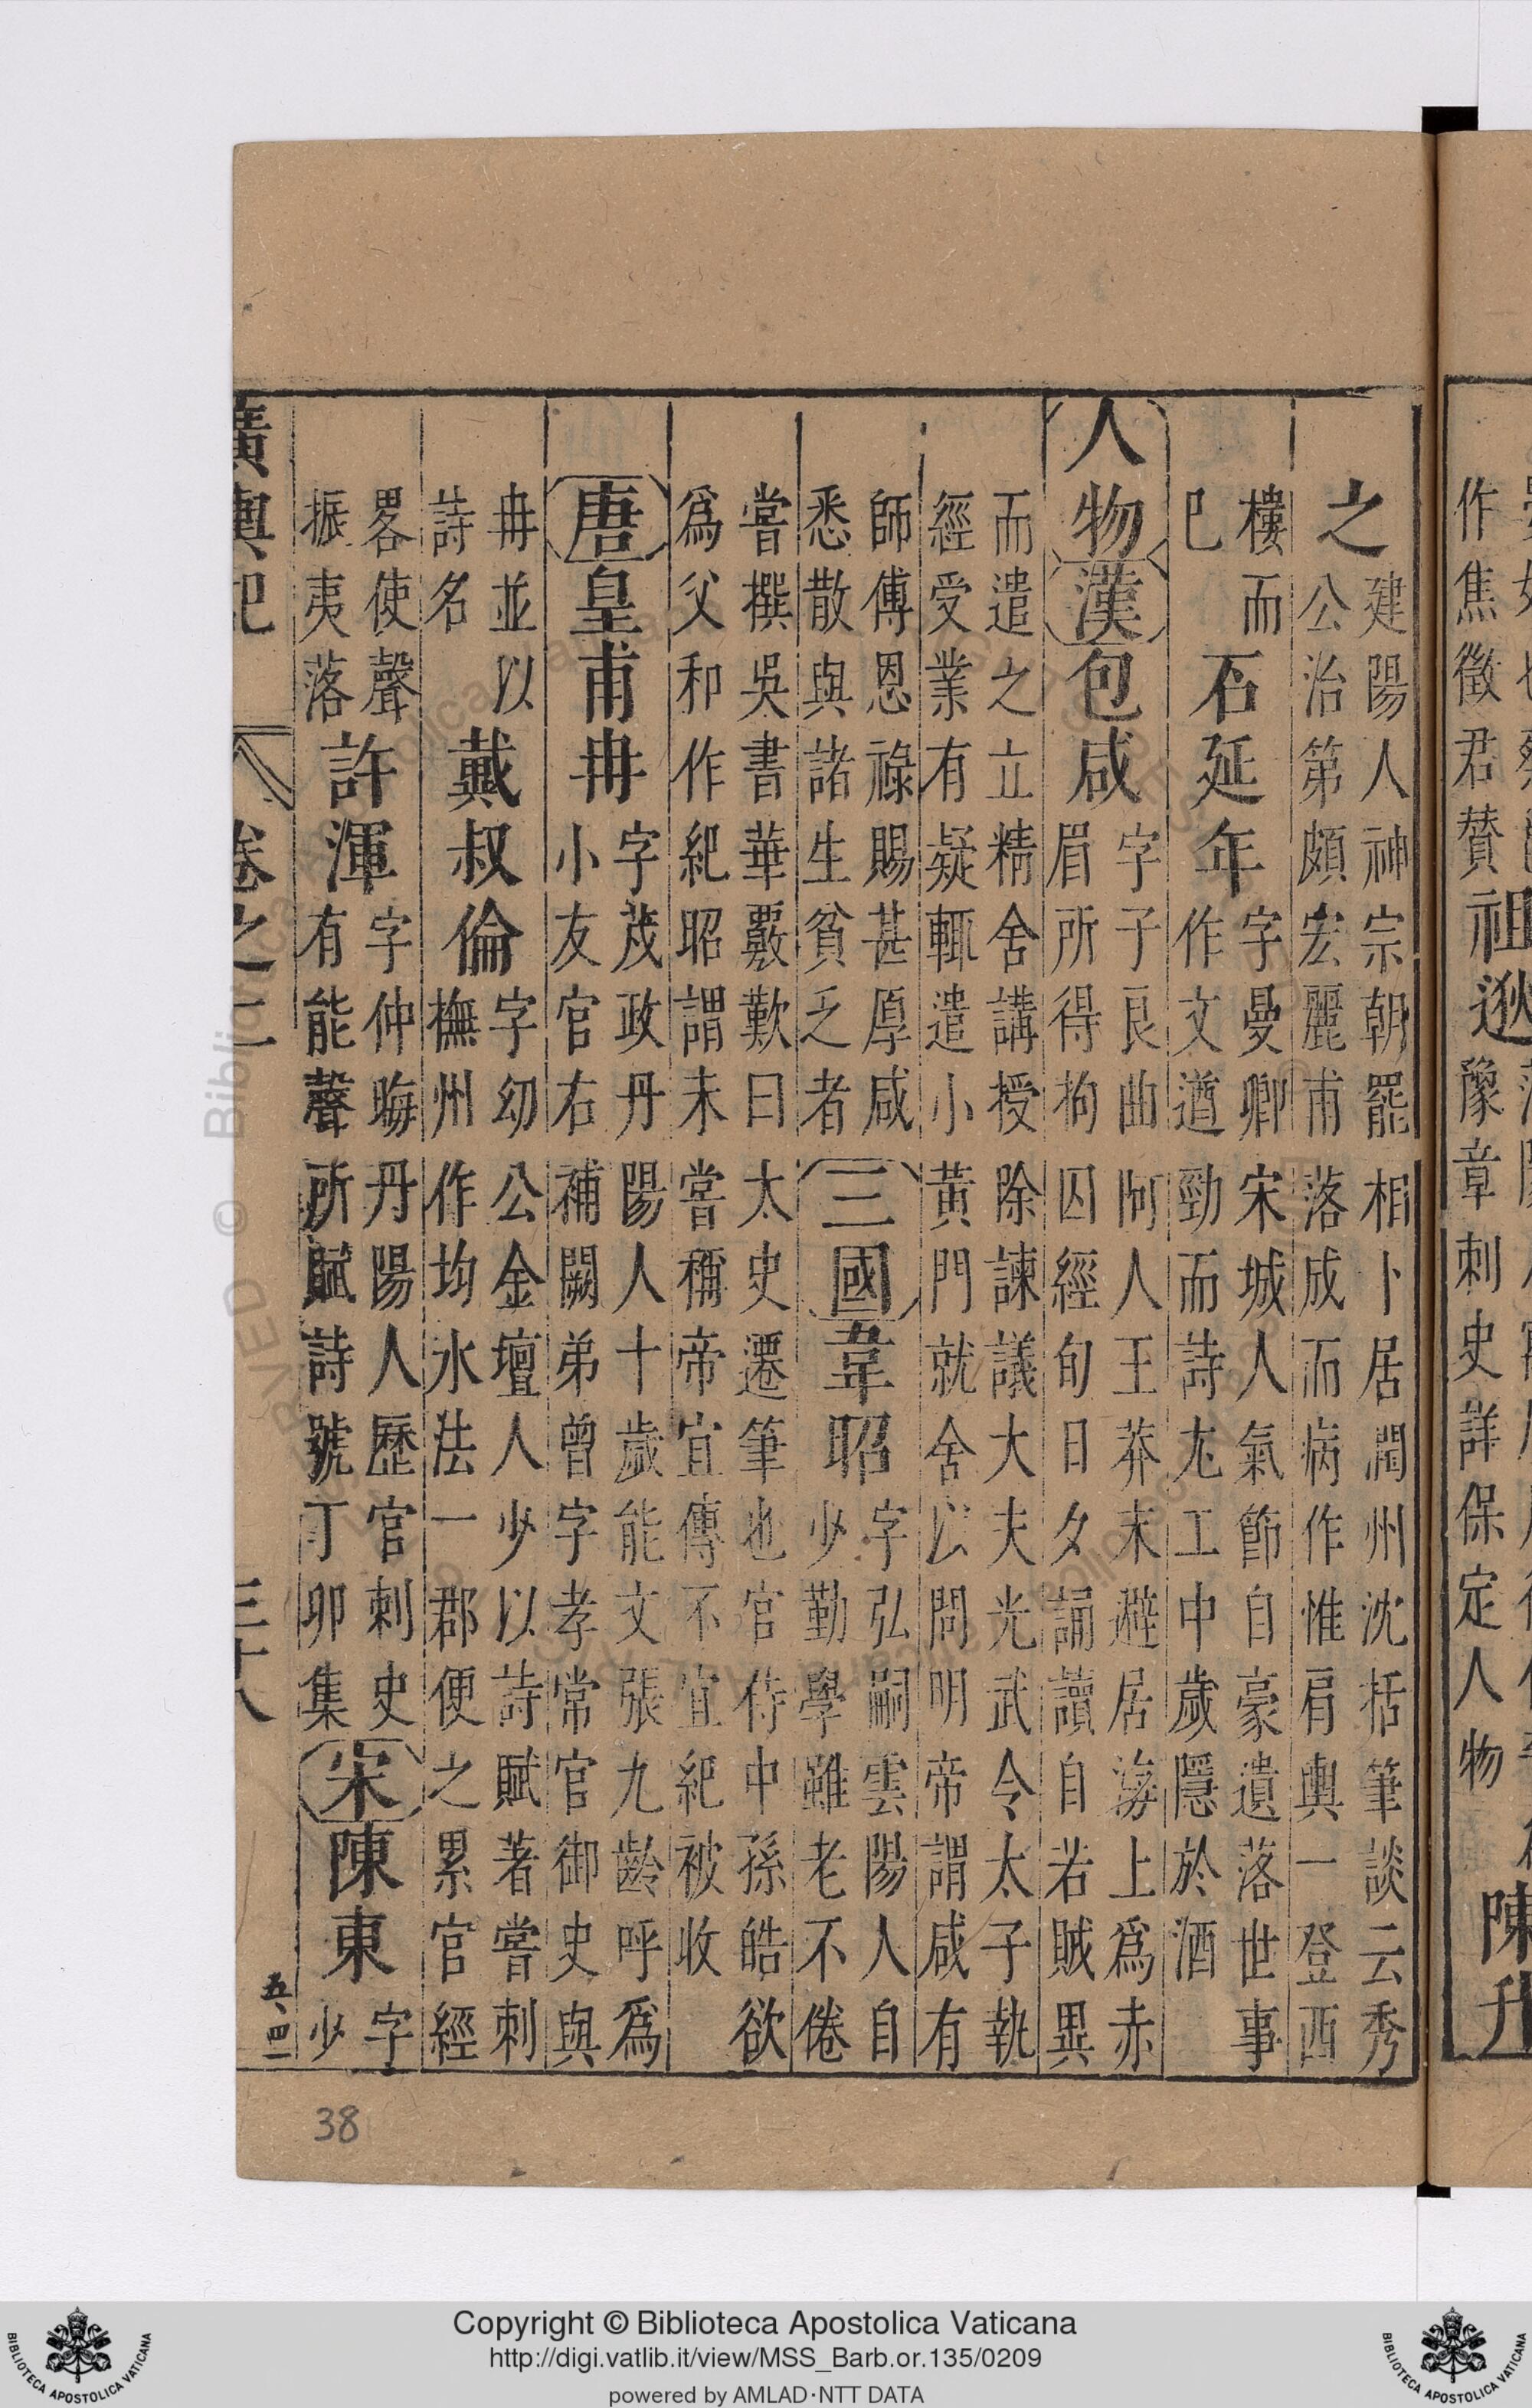 作焦徵君贊
祖逖
豫章刺史詳保定人物
陳升
之
建陽人神宗朝罷相卜居潤州沈括筆談云秀
公治第頗宏麗甫落成而病作惟肩輿一登西
樓而
已
石延年
字曼卿宋城人氣節自豪遺落世事
作文遒勁而詩尤工中歲隱於酒
人物漢包咸
字子良曲阿人王莽末避居海上爲赤
眉所得拘囚經旬日夕誦讀自若賊異
而遣之立精舍講授除諫議大夫光武令太子執
經受業有疑輒遣小黃門就舍以問明帝謂咸有
師傅恩祿賜甚厚咸
悉散與諸生貧乏者
三國韋昭
字弘嗣雲陽人自
少勤學雖老不倦
嘗撰吳書華覈歎曰太史遷筆也官侍中孫皓欲
爲父和作紀昭謂未嘗稱帝宜傳不宜紀被收
唐皇甫冉
字茂政丹陽人十歲能文張九齡呼爲
小友官右補闕弟曾字孝常官御史與
冉並以
詩名
戴叔倫
字幼公金壇人少以詩賦著嘗刺
撫州作均水法一郡便之累官經
畧使聲
振夷落
許渾
字仲晦丹陽人歷官刺史
有能聲所賦詩號丁卯集
宋陳東
字
少
廣輿記 卷之二 三十八
38
Copyright © Biblioteca Apostolica Vaticana
http://digi.vatlib.it/view/MSS_Barb.or.135/0209
powered by AMLAD·NTT DATA
BIBLIOTECA APOSTOLICA VATICANA
BIBLIOTECA APOSTOLICA VATICANA